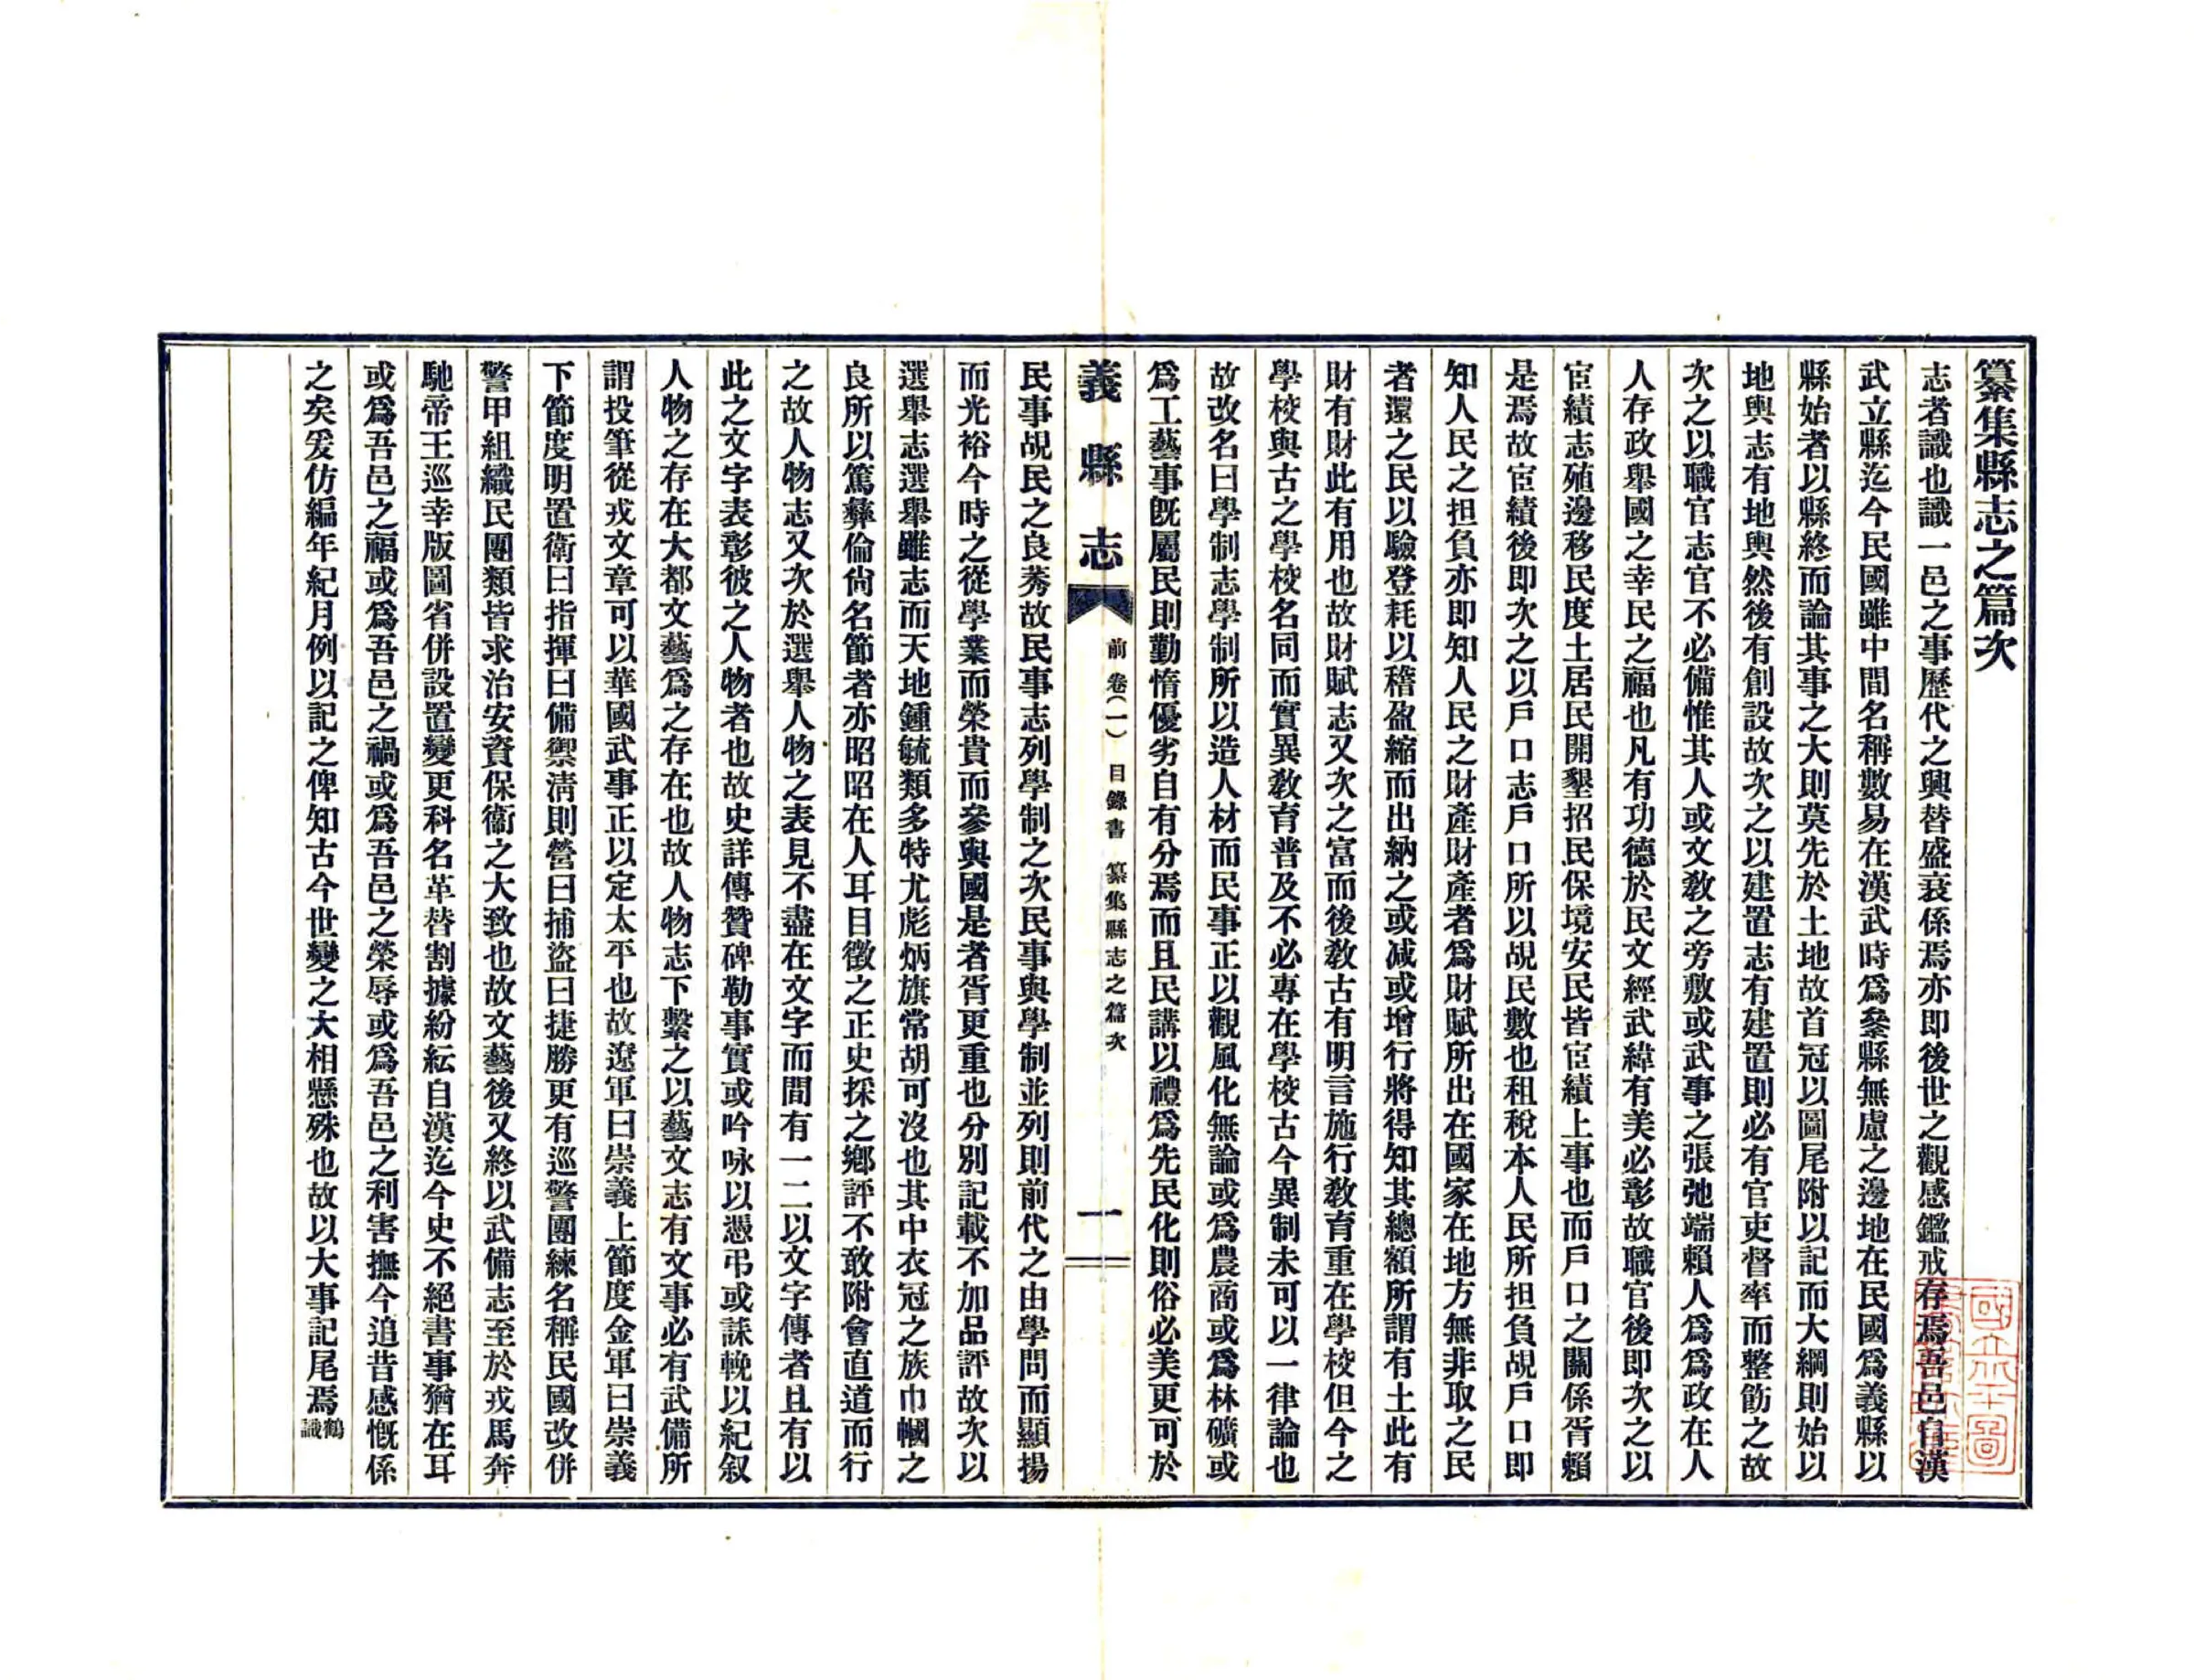 纂集縣志之篇次
志者識也識一邑之事歷代之興替盛衰係焉亦即後世之觀感鑑戒存焉吾邑自漢
武立縣迄今民國雖中間名稱數易在漢武時爲絫縣無慮之邊地在民國爲義縣以
縣始者以縣終而論其事之大則莫先於土地故首冠以圖尾附以記而大綱則始以
地輿志有地輿然後有創設故次之以建置志有建置則必有官吏督率而整飭之故
次之以職官志官不必備惟其人或文敎之旁敷或武事之張弛端賴人爲爲政在人
人存政舉國之幸民之福也凡有功德於民文經武緯有美必彰故職官後即次之以
宦績志殖邊移民度土居民開墾招民保境安民皆宦績上事也而戶口之關係胥賴
是焉故宦績後即次之以戶口志戶口所以覘民數也租稅本人民所担負覘戶口即
知人民之担負亦即知人民之財產財產者爲財賦所出在國家在地方無非取之民
者還之民以驗登耗以稽盈縮而出納之或减或增行將得知其總額所謂有土此有
財有財此有用也故財賦志又次之富而後敎古有明言施行敎育重在學校但今之
學校與古之學校名同而實異敎育普及不必專在學校古今異制未可以一律論也
故改名曰學制志學制所以造人材而民事正以觀風化無論或爲農商或爲林礦或
爲工藝事旣屬民則勤惰優劣自有分焉而且民講以禮爲先民化則俗必美更可於
義縣志 前卷(一) 目錄書 纂集縣志之篇次 一
民事覘民之良莠故民事志列學制之次民事與學制並列則前代之由學問而顯揚
而光裕今時之從學業而榮貴而參與國是者胥更重也分別記載不加品評故次以
選舉志選舉雖志而天地鍾毓類多特尤彪炳旗常胡可沒也其中衣冠之族巾幗之
良所以篤彝倫尙名節者亦昭昭在人耳目徵之正史採之鄕評不敢附會直道而行
之故人物志又次於選舉人物之表見不盡在文字而間有一二以文字傳者且有以
此之文字表彰彼之人物者也故史詳傳贊碑勒事實或吟咏以憑弔或誄輓以紀叙
人物之存在大都文藝爲之存在也故人物志下繫之以藝文志有文事必有武備所
謂投筆從戎文章可以華國武事正以定太平也故遼軍曰崇義上節度金軍曰崇義
下節度明置衛曰指揮曰備禦淸則營曰捕盜曰捷勝更有巡警團練名稱民國改併
警甲組織民團類皆求治安資保衞之大致也故文藝後又終以武備志至於戎馬奔
馳帝王巡幸版圖省併設置變更科名革替割據紛紜自漢迄今史不絕書事猶在耳
或爲吾邑之福或爲吾邑之禍或爲吾邑之榮辱或爲吾邑之利害撫今追昔感慨係
之矣爰仿編年紀月例以記之俾知古今世變之大相懸殊也故以大事記尾焉鶴識